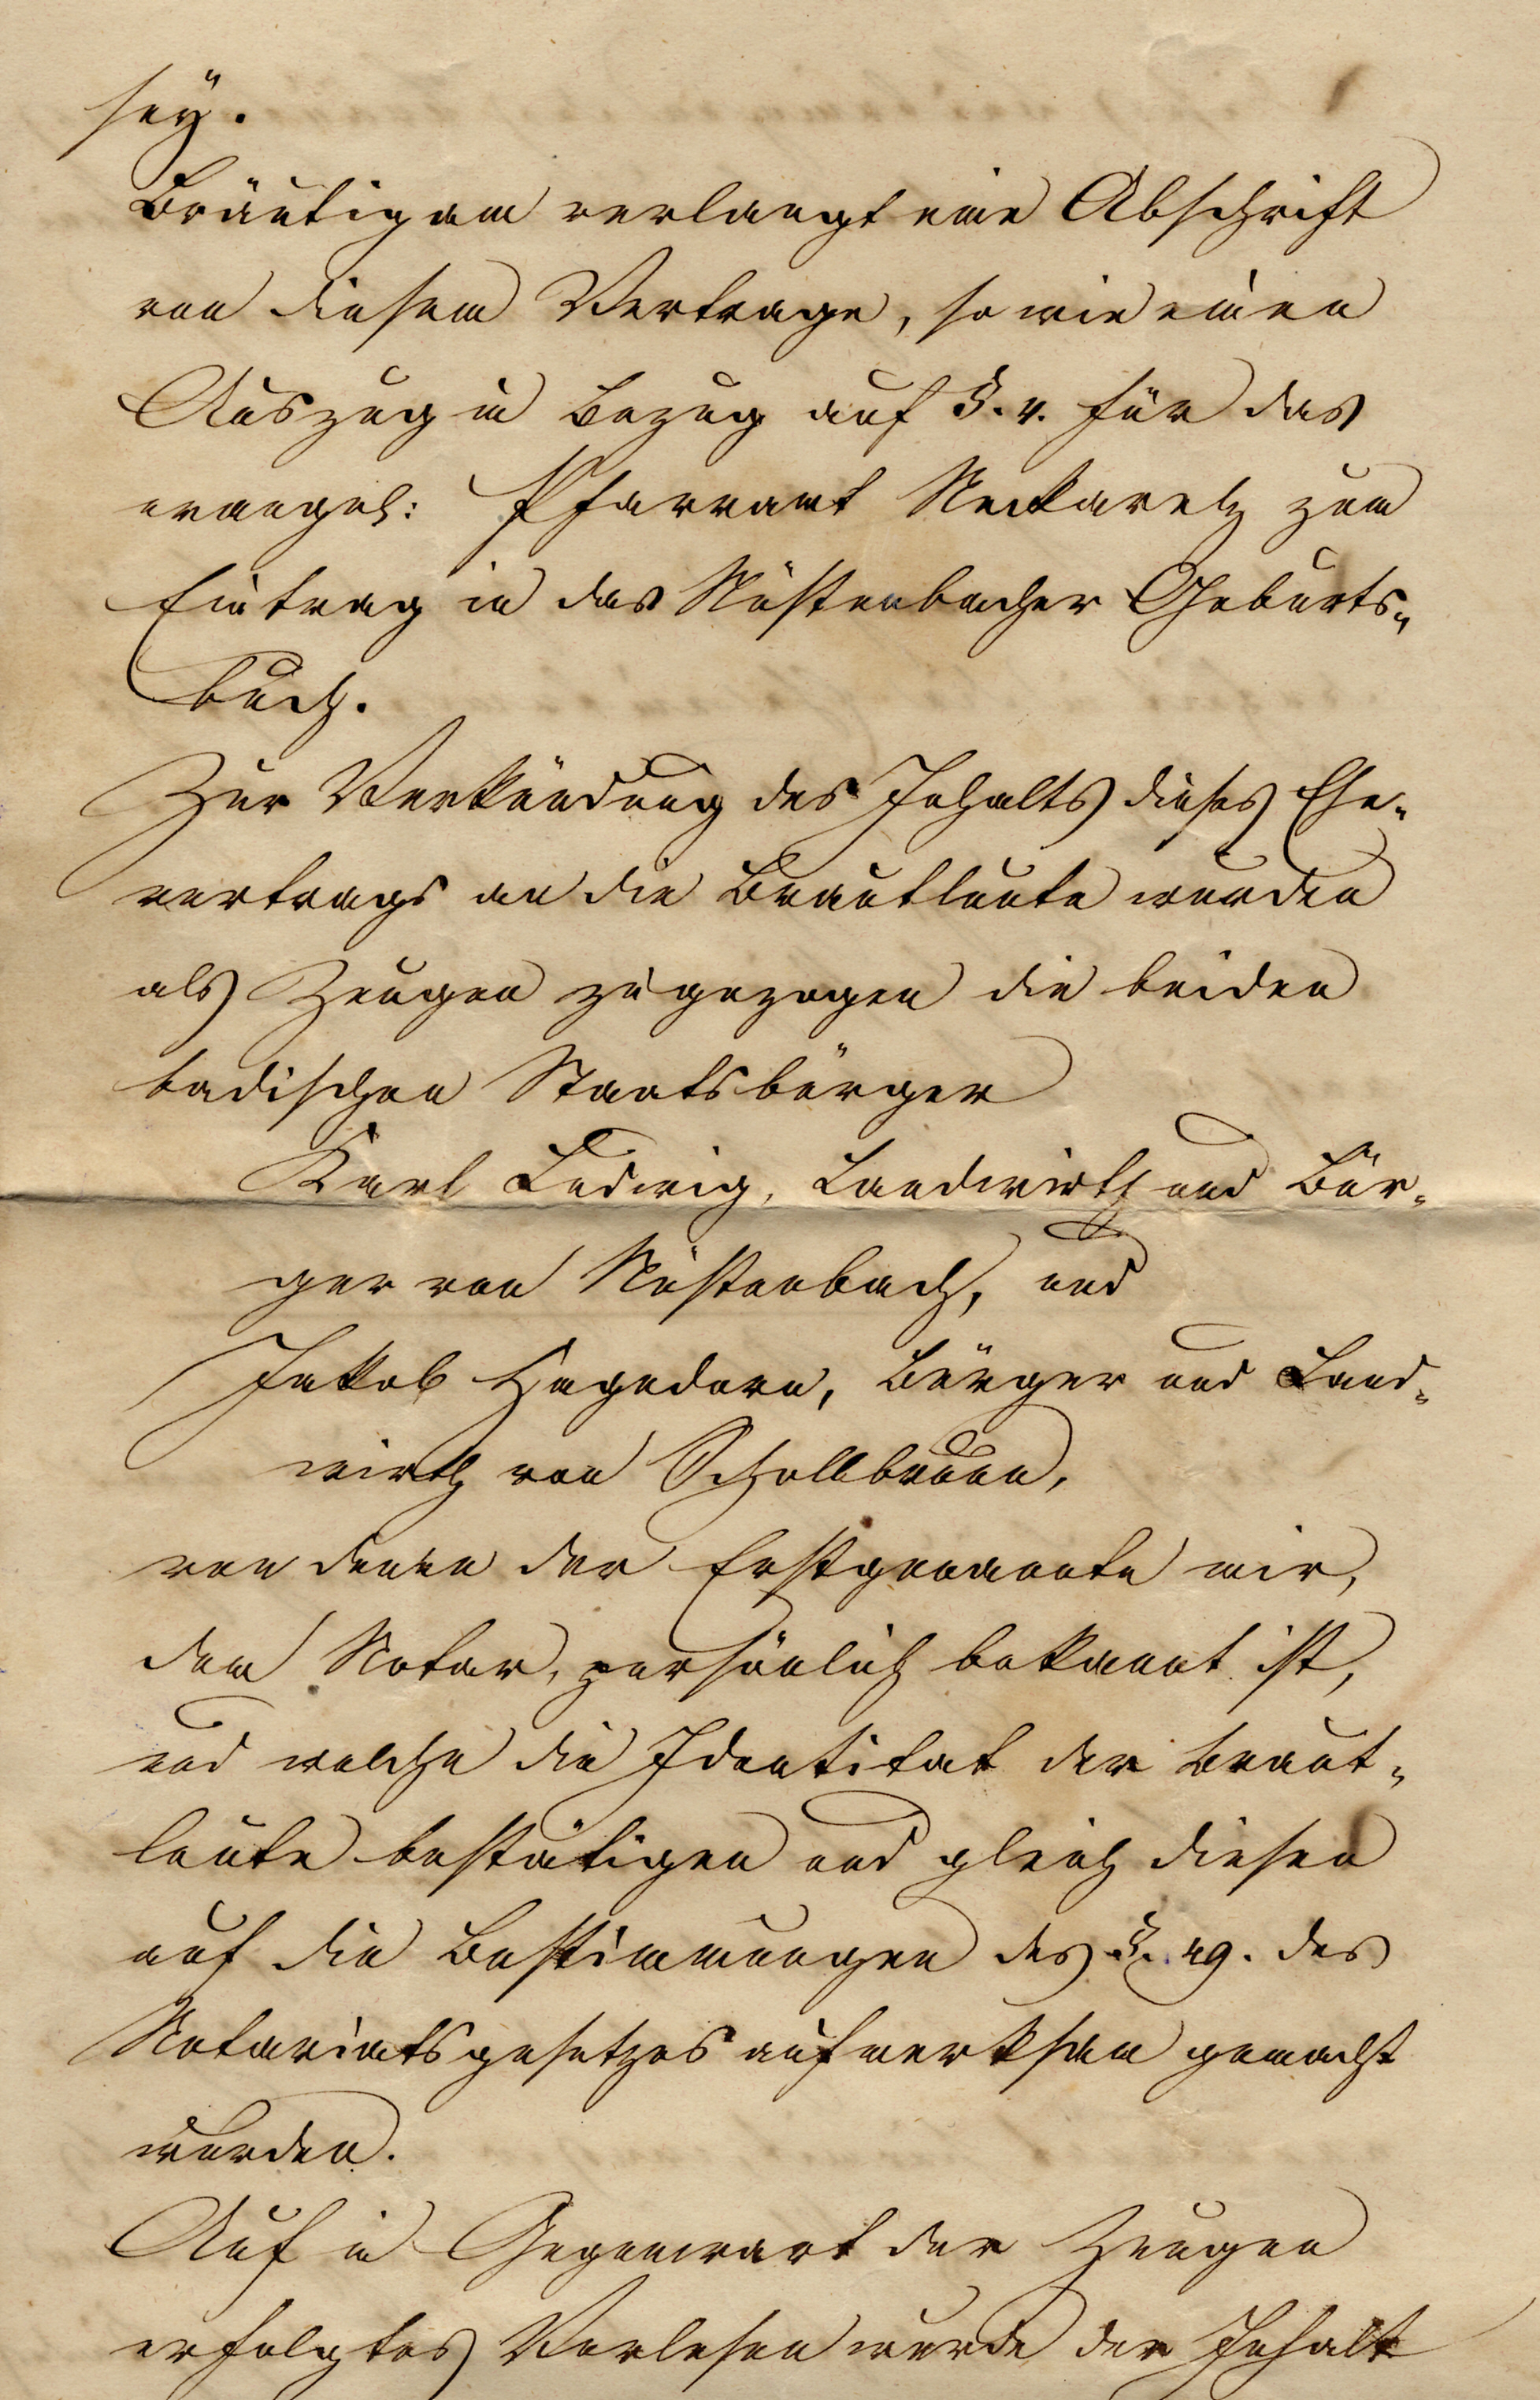 sey.
Bräutigam verlangt eine Abschrift
von diesem Vertrage, so wie einen
Auszug in Bezug auf §. 4. für das
evangel: Pfarramt Neckarelz zum
Eintrag in das Nüstenbacher Geburts„
buch.
Zur Verkündung des Inhalts dieses Ehe„
vertrags an die Brautleute wurden
als Zeugen zugezogen die beiden
badischen Staatsbürger
Karl Ludwig, Landwirth und Bür„
ger von Nüstenbach, und
Jakob Hagedorn, Bürger und Land„
wirth von Schollbrunn,
von denen der Erstgenannte mir,
dem Notar, persönlich bekannt ist,
und welche die Identitat der Braut„
leute bestätigen und gleich diesen
auf die Bestimmungen des §. 49. des
Notariatsgesetzes aufmerksam gemacht
wurden.
Auf in Gegenwart der Zeugen
erfolgtes Vorlesen wurde der Inhalt